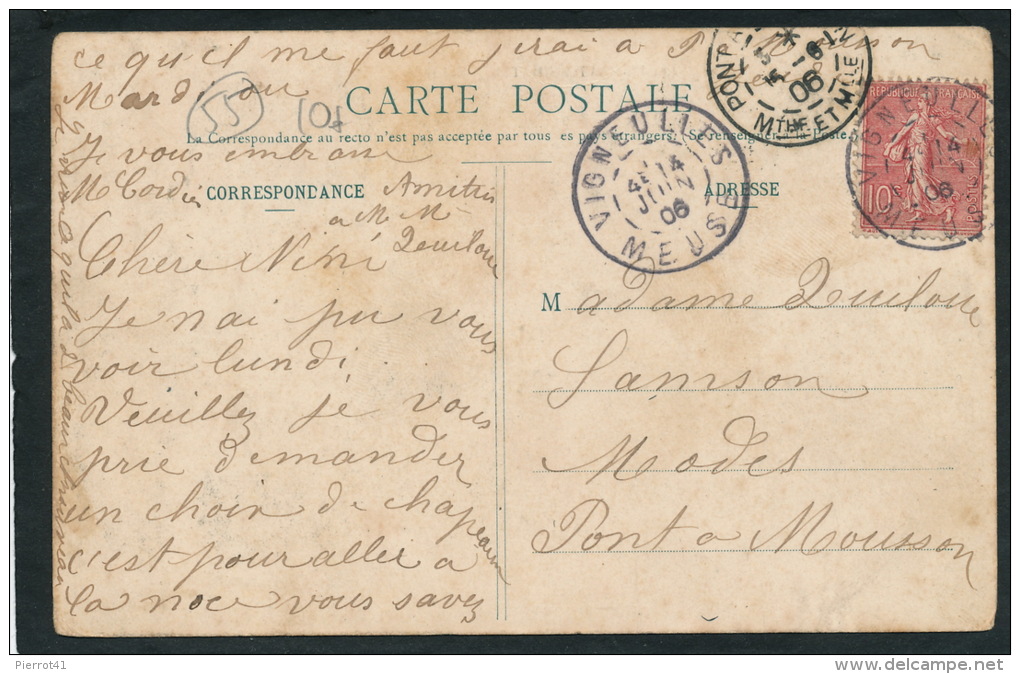 ce qu'il me faut j'irai à P. Mousson
Mardi ou
55
10f
CARTE POSTALE
La Correspondance au recto n'est pas acceptée par tous les pays étrangers. (Se renseigner à la Poste.)
Je vous embrasse
M Cordier
CORRESPONDANCE
Amitiés
a M. M.
Quilou
ADRESSE
Chère Nini
Je nai pu vous
voir lundi.
Veuillez je vous
prie demander
un choix de chapeaux
c'est pour aller a
la noce vous savez
M adame
Samson
Modes
Pont a Mousson
VIGNEULLES
4E 14
JUIN
06
MEUSE
PONT A
06
MTHE ET MLLE
REPUBLIQUE FRANÇAISE
10c
POSTES
VIGNEULLES
14
06
MEUSE
Pierrot41
delcampe.net